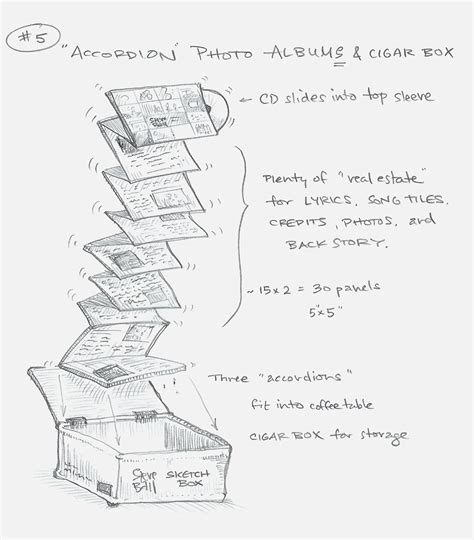 #5
"ACCORDION" PHOTO ALBUMS & CIGAR BOX
← CD slides into top sleeve
Plenty of "real estate"
for LYRICS, SONG TILES,
CREDITS, PHOTOS, and
BACK STORY.
~ 15 x 2 = 30 panels
5"x 5"
Three "accordions"
fit into coffee table
CIGAR BOX for storage
Steve SKETCH
Ball BOX